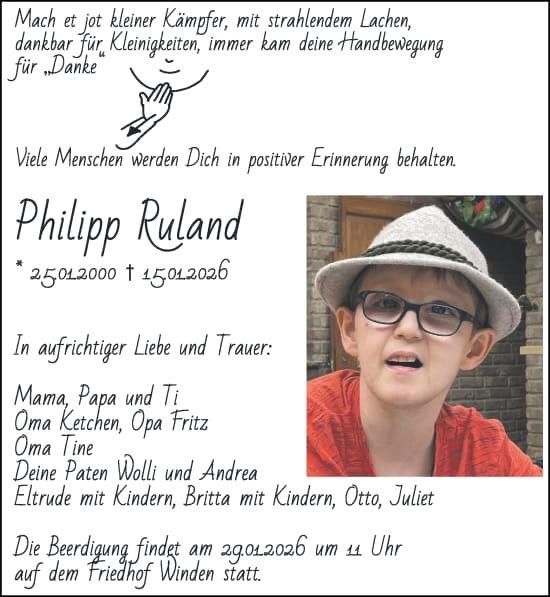 Mach et jot kleiner Kämpfer, mit strahlendem Lachen,
dankbar für Kleinigkeiten, immer kam deine Handbewegung
für „Danke“
Viele Menschen werden Dich in positiver Erinnerung behalten.
Philipp Ruland
* 25.01.2000 † 15.01.2026
In aufrichtiger Liebe und Trauer:
Mama, Papa und Ti
Oma Ketchen, Opa Fritz
Oma Tine
Deine Paten Wolli und Andrea
Eltrude mit Kindern, Britta mit Kindern, Otto, Juliet
Die Beerdigung findet am 29.01.2026 um 11 Uhr
auf dem Friedhof Winden statt.